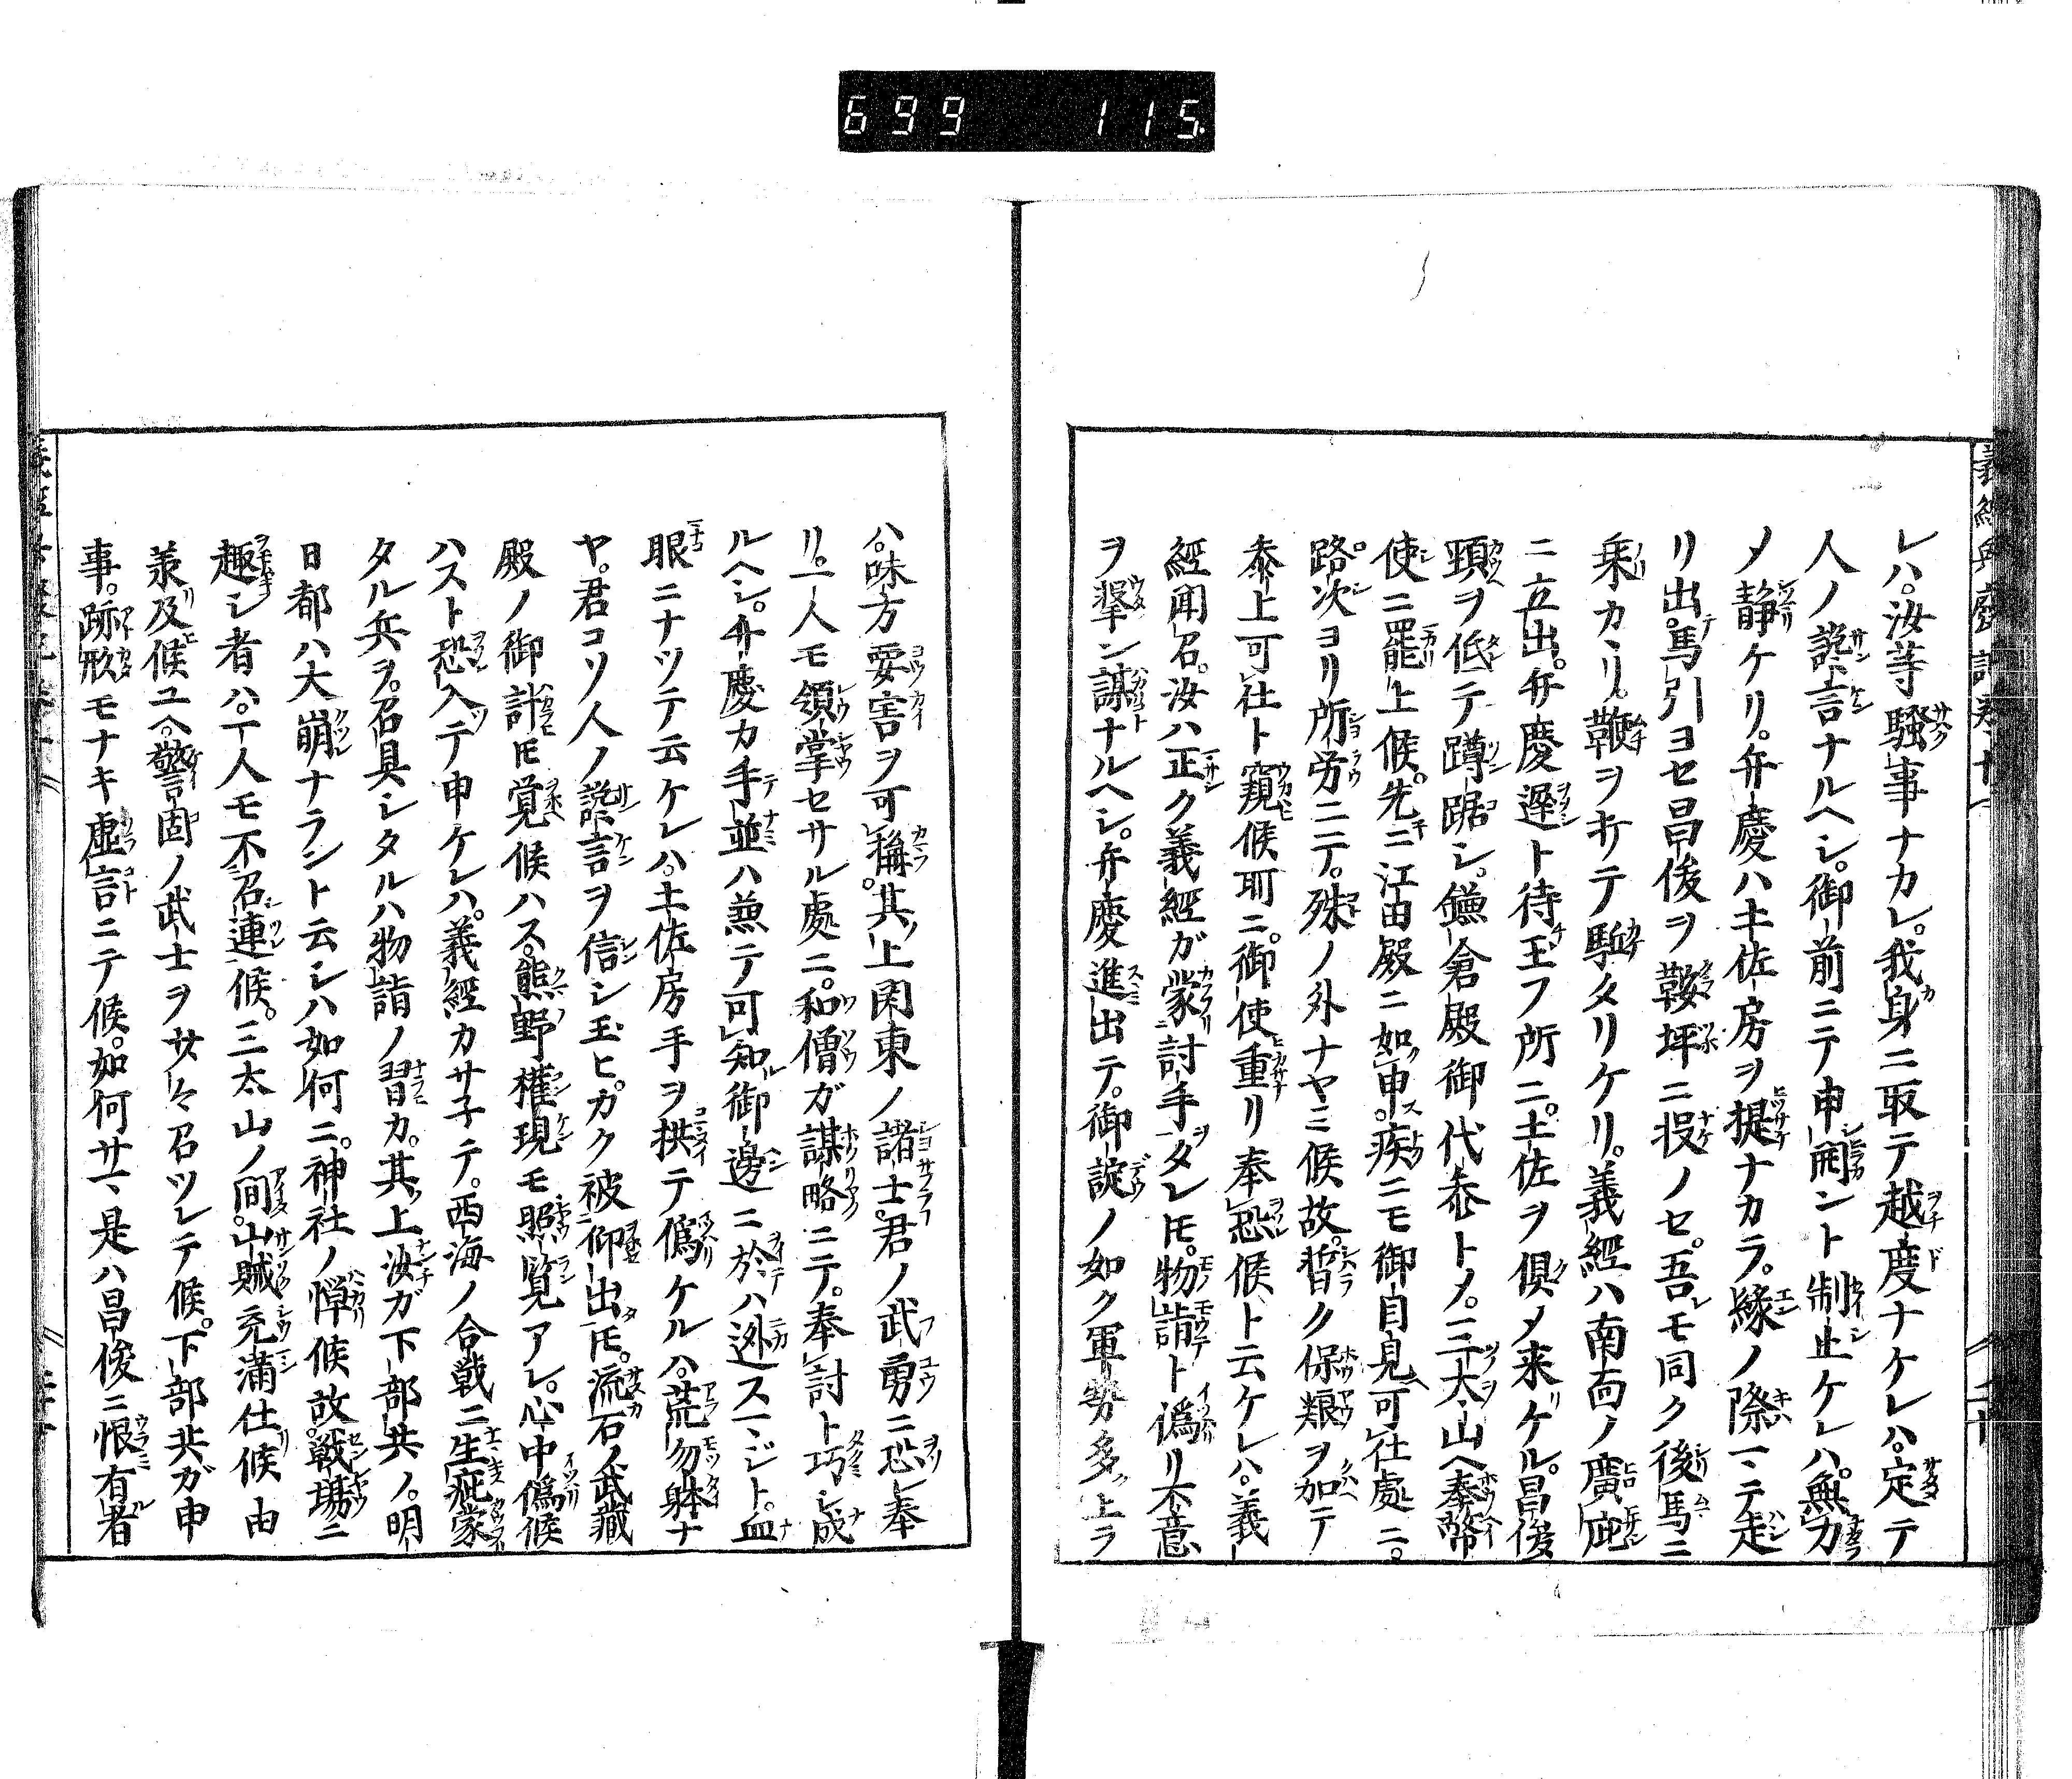 699 115.
レハ。汝等騒事ナカレ。我身ニ取テ越度ナケレハ。定テ
人ノ讒言ナルヘシ。御前ニテ申開ント制止ケレハ。無力
メ静ケリ。弁慶ハ土佐房ヲ提ナカラ。縁ノ際マテ走
リ出。馬引ヨセ昌俊ヲ鞍坪ニ投ノセ。吾モ同ク後馬ニ
乗カヽリ。鞭ヲ㪅テ駈タリケリ。義經ハ南面ノ廣庇
ニ立出。弁慶遲ト待玉フ所ニ。土佐ヲ倶メ来ケル。昌俊
頭ヲ低テ蹲踞シ。鎌倉殿御代叅トメ。三大山ヘ奉幣
使ニ罷上候。先ニ江田殿ニ如申。疾ニモ御目見可仕處ニ。
路次ヨリ所労ニテ。殊ノ外ナヤミ候故。暫ク保粮ヲ加テ
叅上可仕ト窺候耵ニ。御使重リ奉恐候ト云ケレハ。義
經聞召。汝ハ正ク義經ガ蒙討手タレ𪜈。物詣ト偽リ不意
ヲ撃ン謀ナルヘシ。弁慶進出テ。御諚ノ如ク軍勢多上ラ
ハ。味方要害ヲ可稱。其上関東ノ諸士。君ノ武勇ニ恐奉
リ。一人モ領掌セサル處ニ。和僧ガ謀略ニテ。奉討ト巧シ成
ルヘシ。弁慶カ手並ハ兼テ可知御邊ニ於ハ迯スマジト。血
眼ニナツテ云ケレハ。土佐房手ヲ拱テ偽ケルハ。荒勿躰ナ
ヤ。君コソ人ノ讒言ヲ信シ玉ヒ。カク被仰出𪜈。流石ノ武藏
殿ノ御計𪜈覚候ハス。熊野權現モ照覧アレ。心中偽候
ハスト恐入テ申ケレハ。義經カサ子テ。西海ノ合戦ニ生疵蒙
タル兵ヲ。召具シタルハ物詣ノ習カ。其上汝ガ下部共ノ。明
日都ハ大崩ナラント云シハ如何ニ。神社ノ憚候故。戦場ニ
趣シ者ハ。一人モ不召連候。三太山ノ間。山賊充満仕候由
羕及候ユヘ。警固ノ武士ヲサヽ々召ツレテ候。下部共ガ申
事。跡形モナキ虚言ニテ候。如何サマ是ハ昌俊ニ恨有者